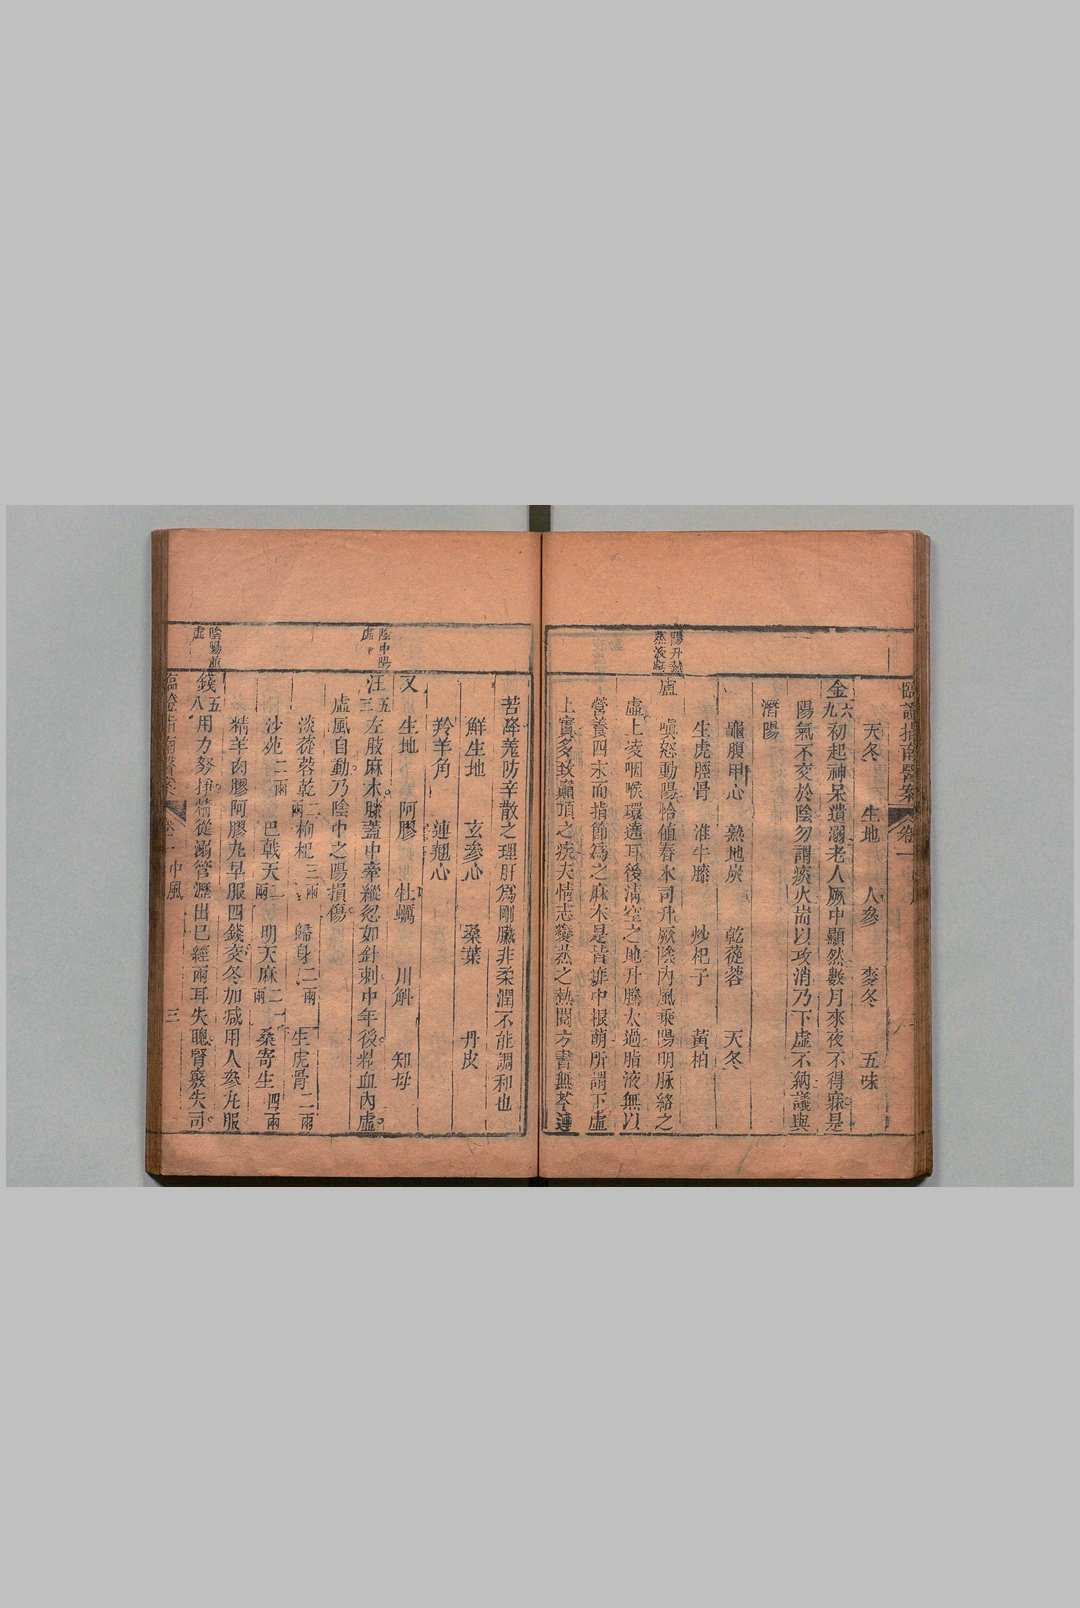 臨證指南醫案 卷一
天冬 生地 人參 麥冬 五味
金六九 初起神呆遺溺老人厥中顯然數月來夜不得寐是
陽氣不交於陰勿謂痰火岢以攻消乃下虛不納議與
潛陽
龜腹甲心 熟地炭 乾蓯蓉 天冬
生虎脛骨 淮牛膝 炒杞子 黃柏
陽升熱蒸液虧
盧 嗔怒動陽恰值春木司升厥陰內風乘陽明脉絡之
虛上凌咽喉環遶耳後清空之地升騰太過脂液無以
營養四末而指節為之麻木是皆痱中根萌所謂下虛
上實多致巔頂之疾夫情志變蒸之熱閱方書無芩連
苦降羌防辛散之理肝為剛臟非柔潤不能調和也
鮮生地 玄參心 桑葉 丹皮
羚羊角 連翹心
又 生地 阿膠 牡蠣 川斛 知母
陰中陽虛
汪五三 左肢麻木膝蓋中牽縱忽如針刺中年後精血內虛
虛風自動乃陰中之陽損傷
淡蓯蓉乾二兩 枸杞三兩 歸身二兩 生虎骨二兩
沙苑二兩 巴戟天二兩 明天麻二兩 桑寄生四兩
精羊肉膠阿膠丸早服四錢交冬加減用人參丸服
陰陽並虛
錢五八 用力努掙精從溺管瀝出已經兩耳失聰腎竅失司
臨證指南醫案 卷一 中風 三